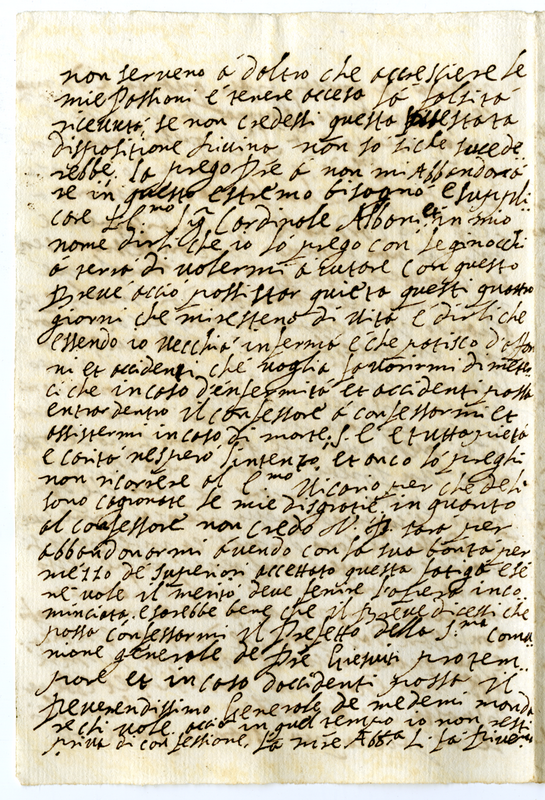 non serveno à d'altro che accressiere le
mie Passioni e tenere accesa la falsità
ricevuta, se non credessi questa stata
dispositione divina non so li che sucede
rebbe. la prego Pre à non mi Abbandona
re in questo estremo bisogno e suppli
care L'E.mo Sig. Cardinale Albani et in mio
nome dirli che io lo prego con le ginocchi
à terra di volermi à iutare con questo
Breve acciò possi star quieta questi quattro
giorni che mi resteno di vita e dirli che
essendo io vecchia inferma e che patisco d'affan
ni et accidenti che voglia favorirmi di metter
ci che in caso d'infermità et accidenti possa
entrar dentro il confessore à confessarmi et
assistermi in caso di morte. S. E. e tutta pietà
e carità ne spero l'intento, et anco lo preghi
non ricorrere al E.mo Vicario per che de li
sono cagionate le mie disgratie in quanto
al confessore non credo sarà per
abbandonarmi avendo con la sua bontà per
mezzo de superiori accettato questa fatiga e se
ne vole il merito deve fenire l'opera inco
minciata. e sarebbe bene che il Breve dicessi che
possa confessarmi il Prefetto della S.ma Comu
nione generale de Pre Giesuiti pro tem
pore et in caso d'accidenti possa il
Reverendissimo Generale de medemi manda
re chi vole acciò in quel tempo io non resti
priva di confessione. La mre Abb.a L. la Riveri